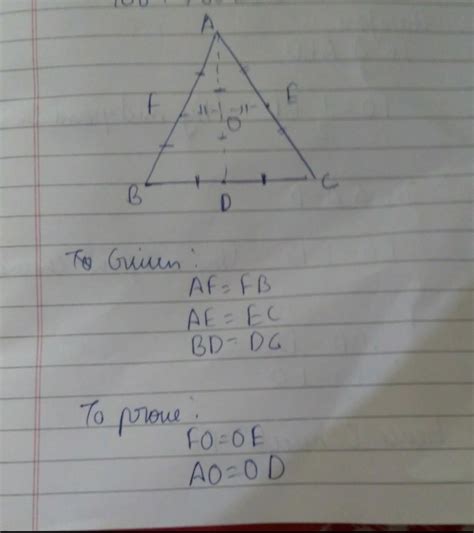 A
F
E
O
B
D
C
To Given:
AF = FB
AE = EC
BD = DC
To prove:
FO = OE
AO = OD